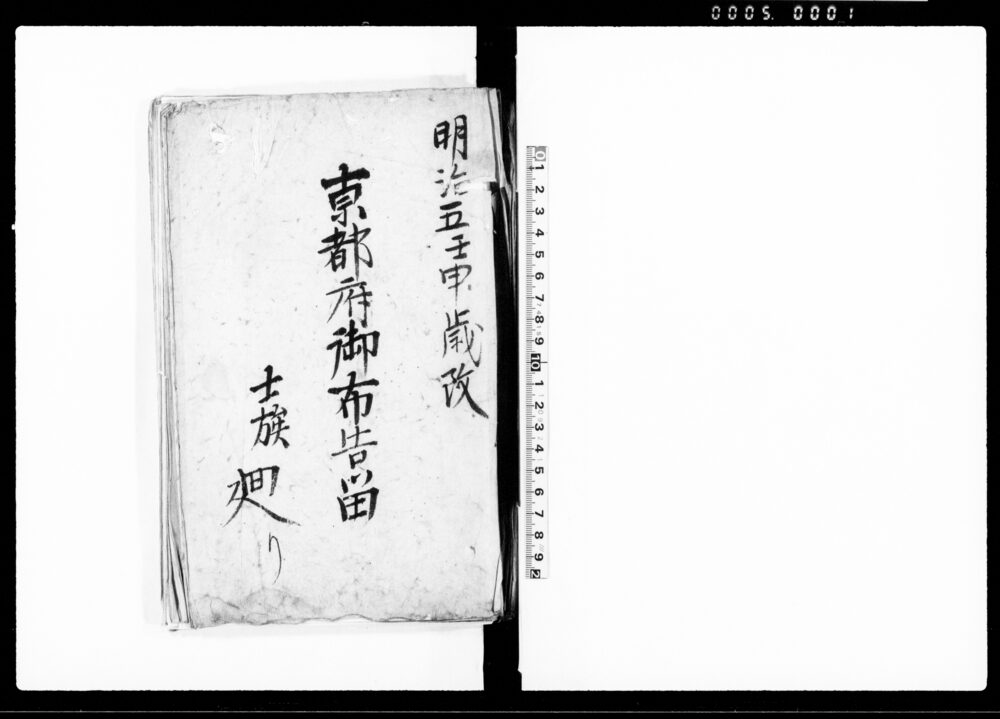 0005. 0001
明治五壬申歳改
京都府御布告留
士族
廻り
0 1 2 3 4 5 6 7 8 9 10 1 2 3 4 5 6 7 8 9 2